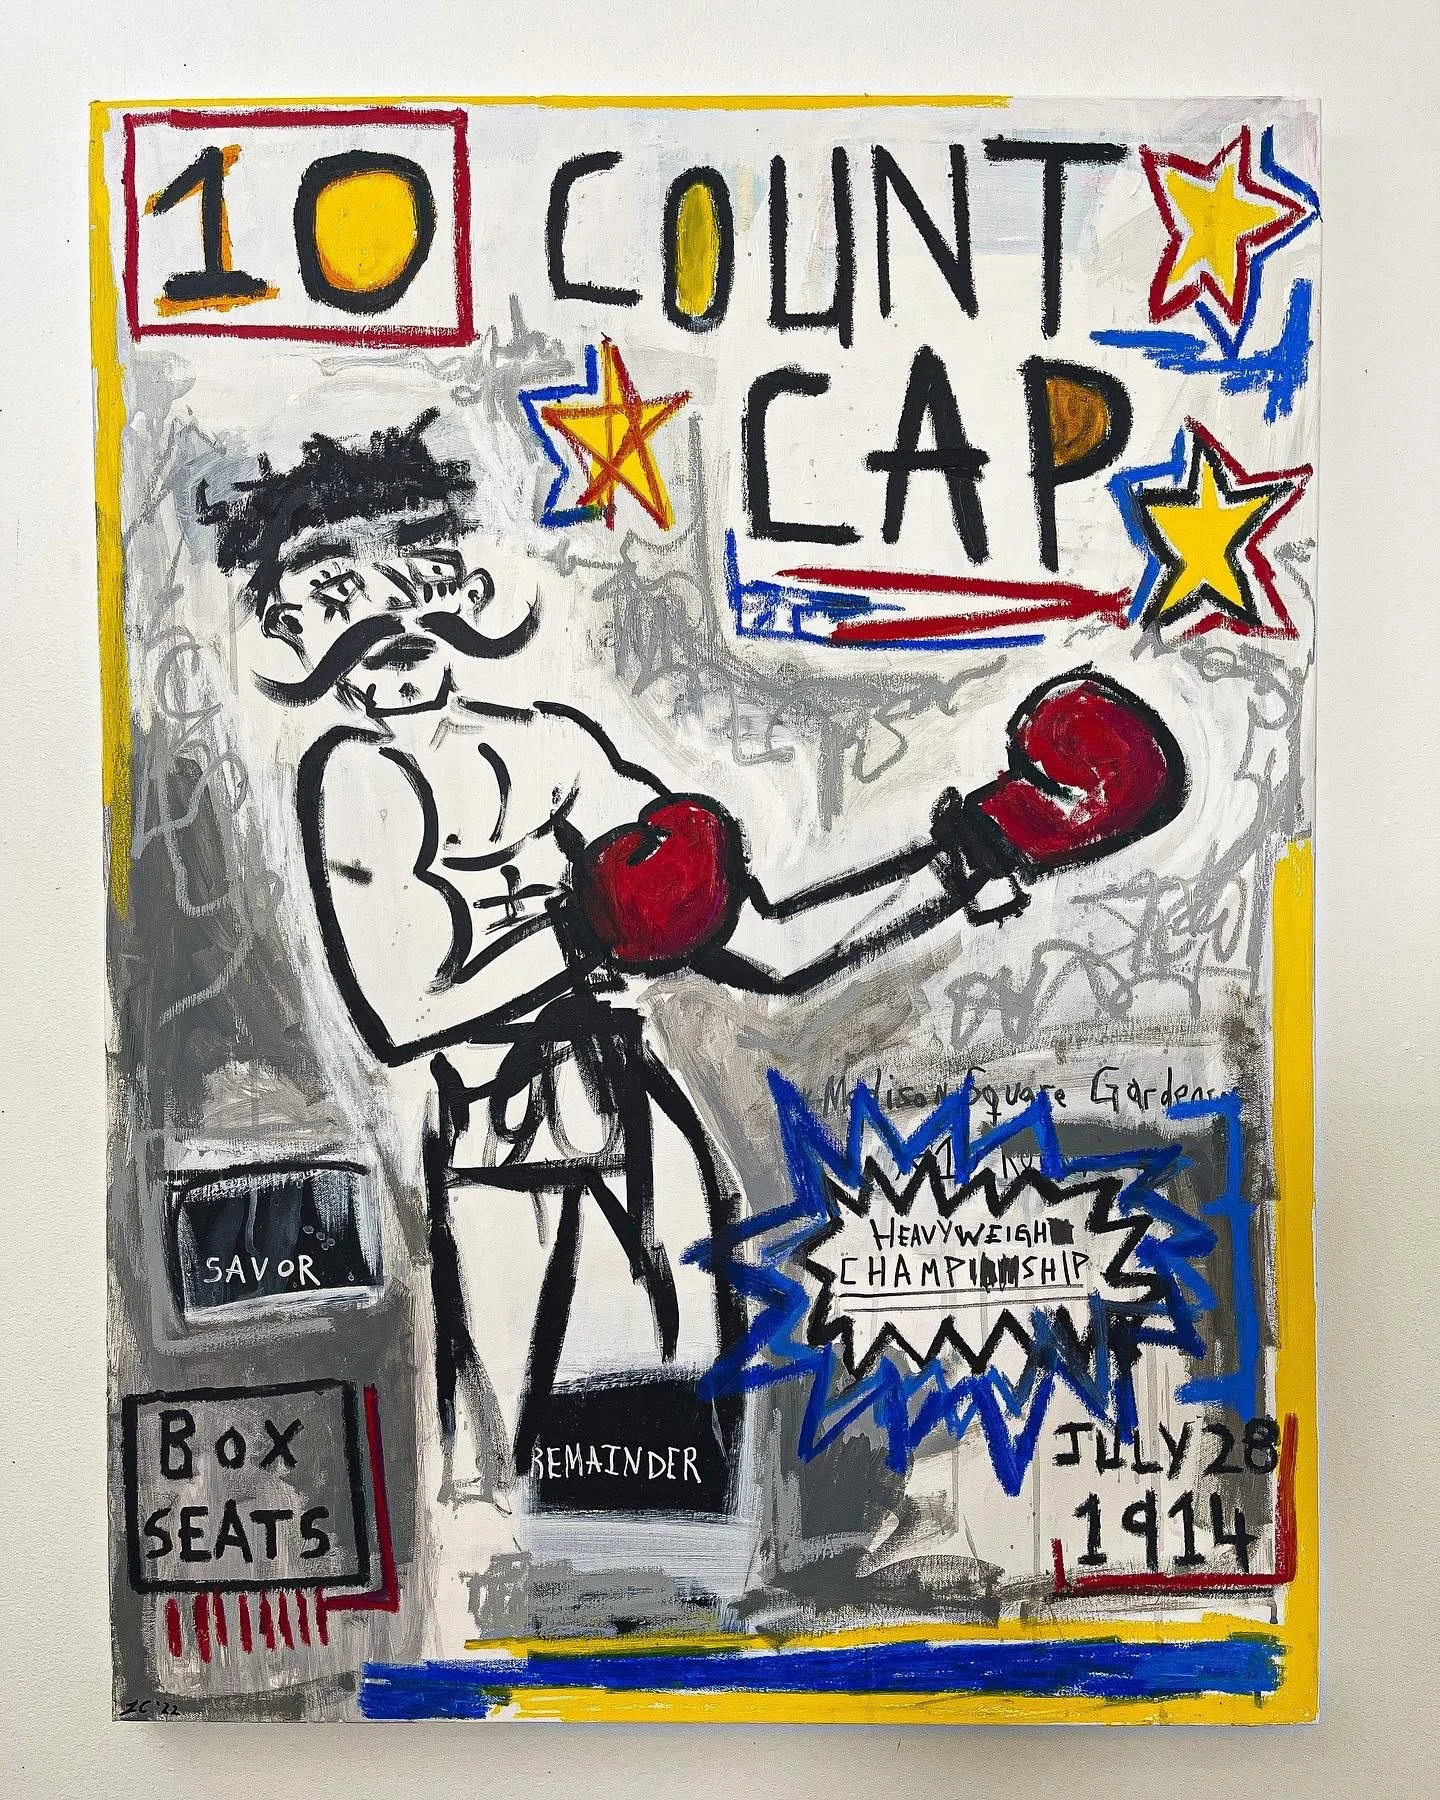 10 COUNT
CAP
Madison Square Garden
HEAVYWEIGH
CHAMPIONSHIP
SAVOR
BOX
SEATS
REMAINDER
JULY 28
1914
JC '22